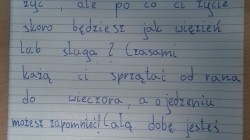 żyć, ale po co ci życie
skoro będziesz jak więzień
lub sługa? Czasami
każą ci sprzątać od rana
do wieczora, a o jedzeniu
możesz zapomnieć! Całą dobę jesteś